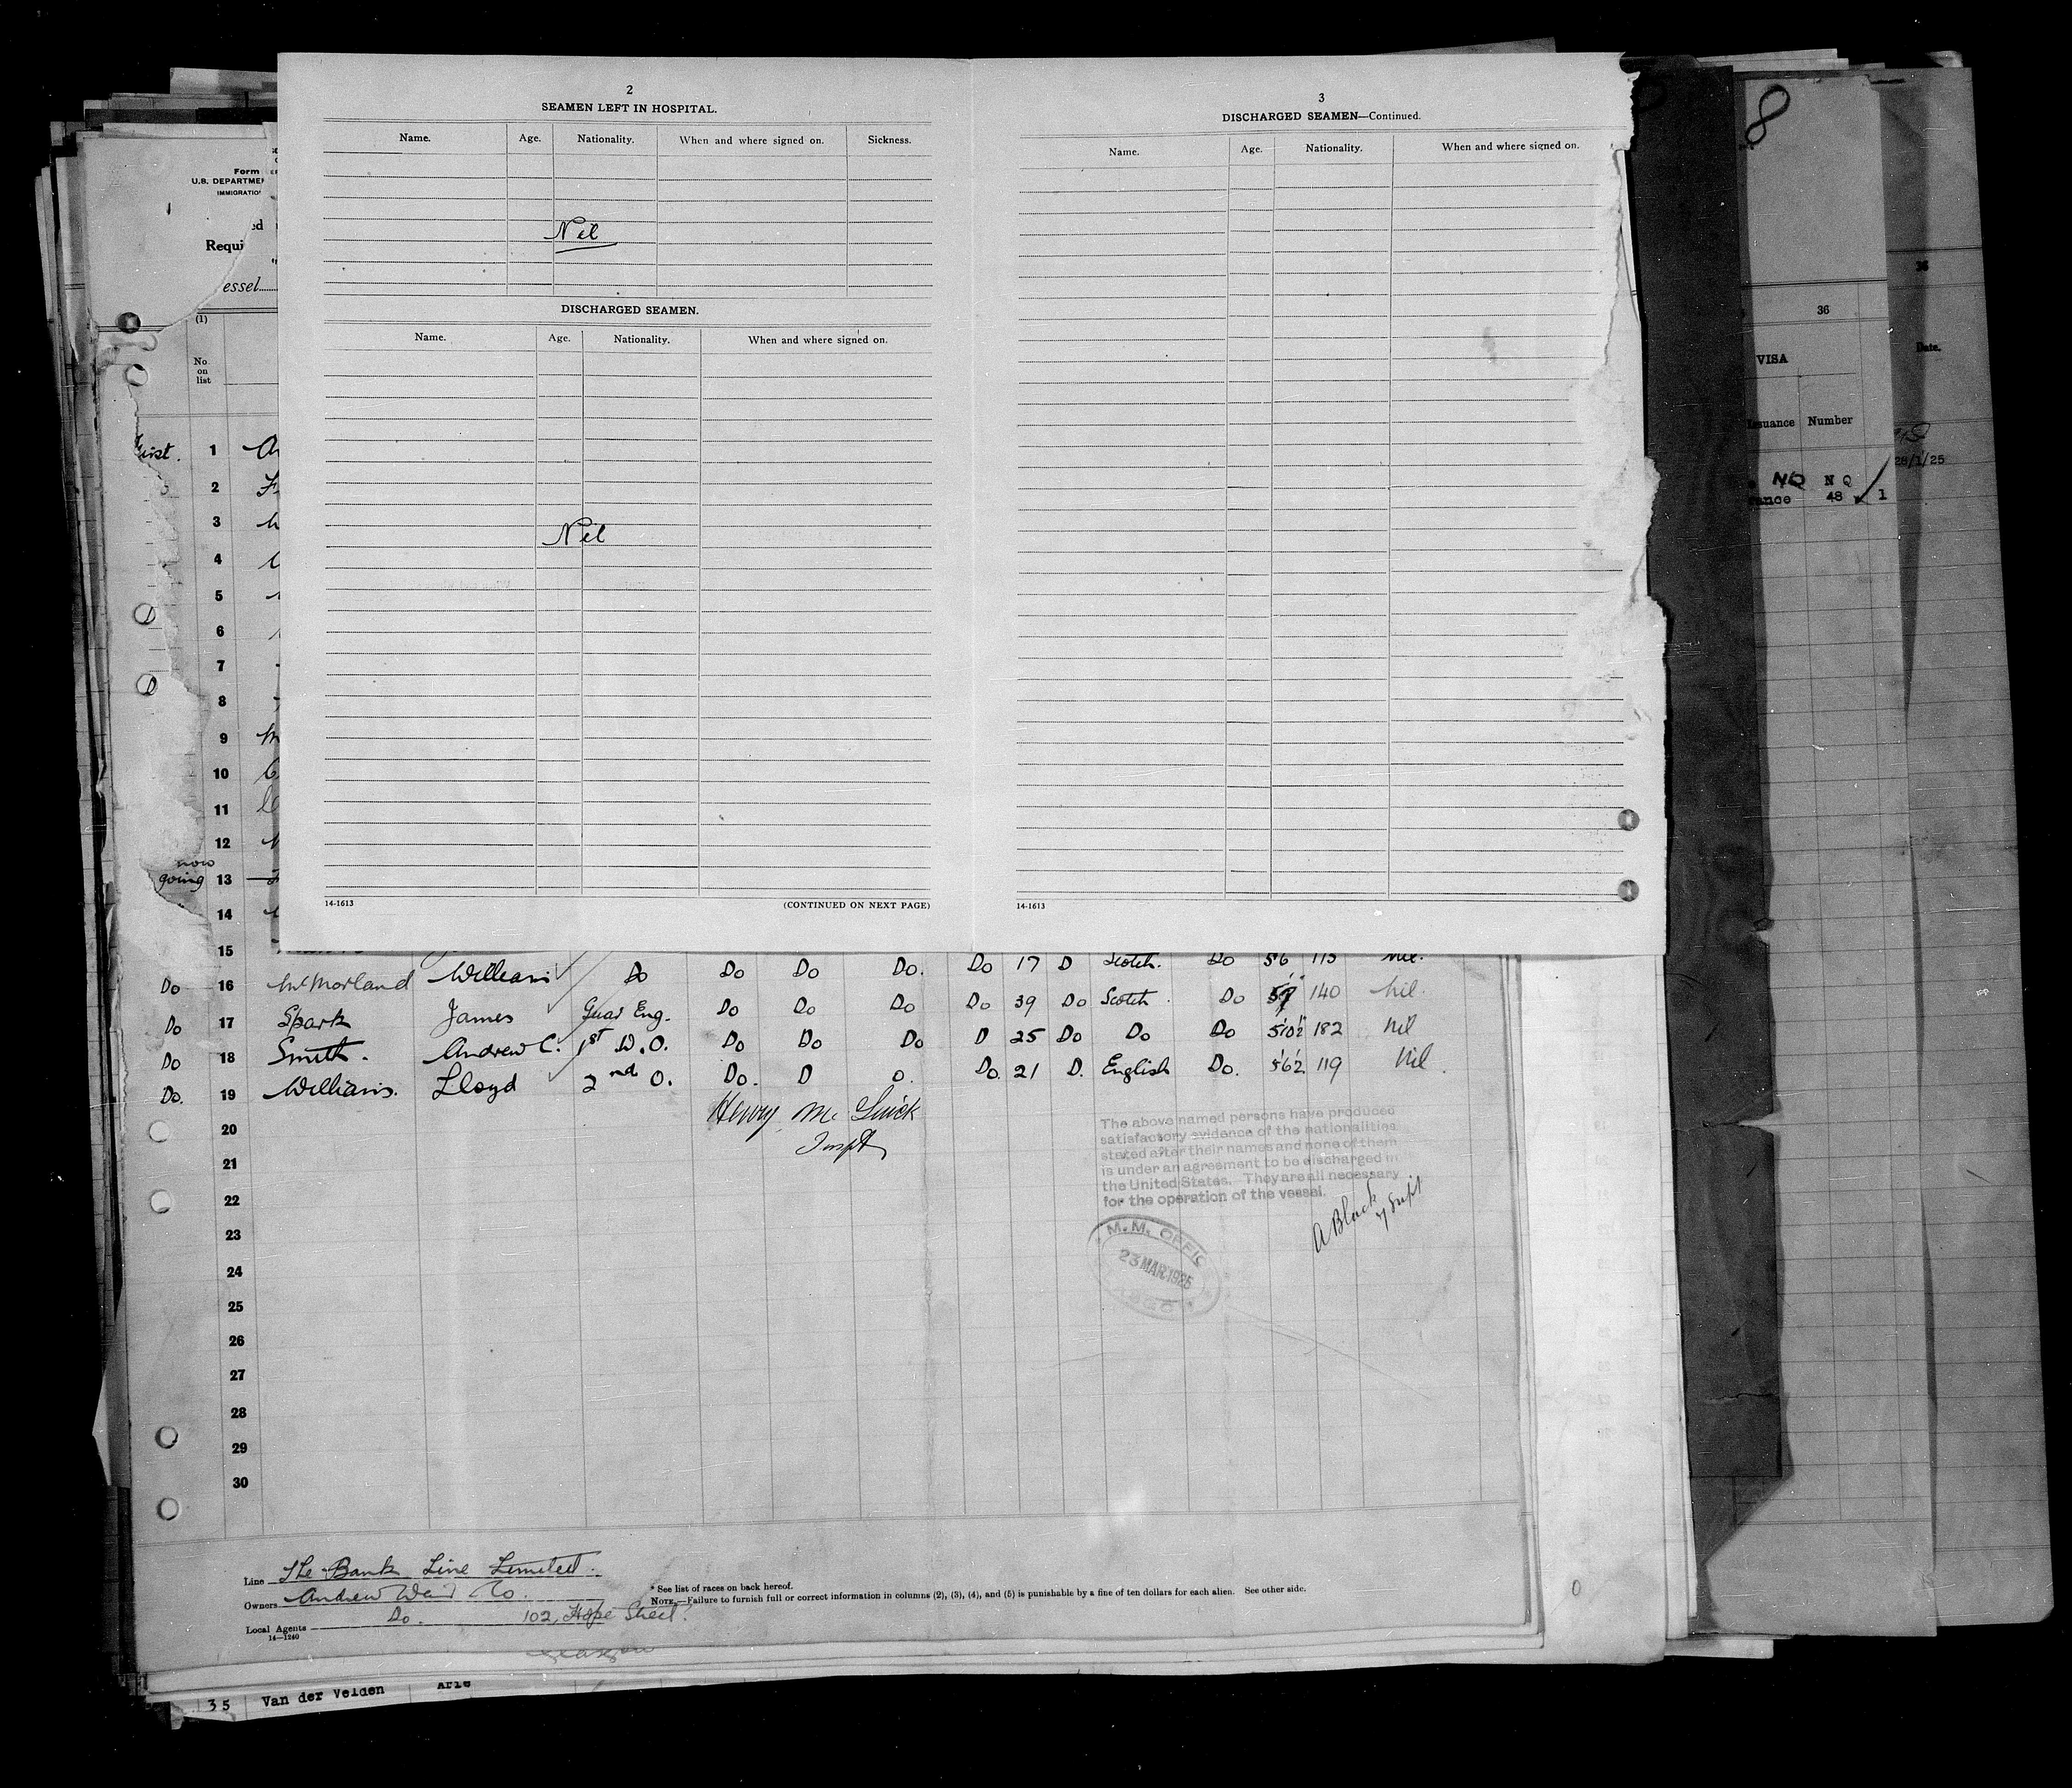 2
SEAMEN LEFT IN HOSPITAL.
Name. Age. Nationality. When and where signed on. Sickness.
Nil
DISCHARGED SEAMEN.
Name. Age. Nationality. When and where signed on.
Nil
14-1613 (CONTINUED ON NEXT PAGE)
3
DISCHARGED SEAMEN—Continued.
Name. Age. Nationality. When and where signed on.
14-1613
Form
U.S. DEPARTME
IMMIGRATIO
Requi
essel
(1)
No. on list
1
2
3
4
5
6
7
8
9
10
11
12
now
going 13
14
15
Do 16 McMorland William Do Do Do Do. Do 17 D Scotch. Do 5'6 113 Nil.
Do 17 Spark James Do Do Do Do 39 Do Scotch Do 140 Nil.
Do 18 Smith. Andrew C. 1st W.O. Do Do Do D 25 Do Do Do 5'10½ 182 Nil
Do. 19 Williams. Lloyd 2nd O. Do. D o. Do. 21 D. English Do. 5'6½ 119 Nil.
20 Henry Mc
21
22
23
24
25
26
27
28
29
30
The above named persons have produced
satisfactory evidence of the nationalities
stated after their names and none of them
is under an agreement to be discharged in
the United States. They are all necessary
for the operation of the vessel.
A Black
M.M. OFFIC
23 MAR 1925
Line The Bank Line Limited.
Owners Andrew Weir & Co.
Local Agents Do. 102, Hope Street.
14—1240
Glasgow
* See list of races on back hereof.
NOTE.—Failure to furnish full or correct information in columns (2), (3), (4), and (5) is punishable by a fine of ten dollars for each alien. See other side.
35 Van der Velden Arie
8
36
VISA
Issuance Number
NO N Q
48 1
36
Date.
28/1/25
0